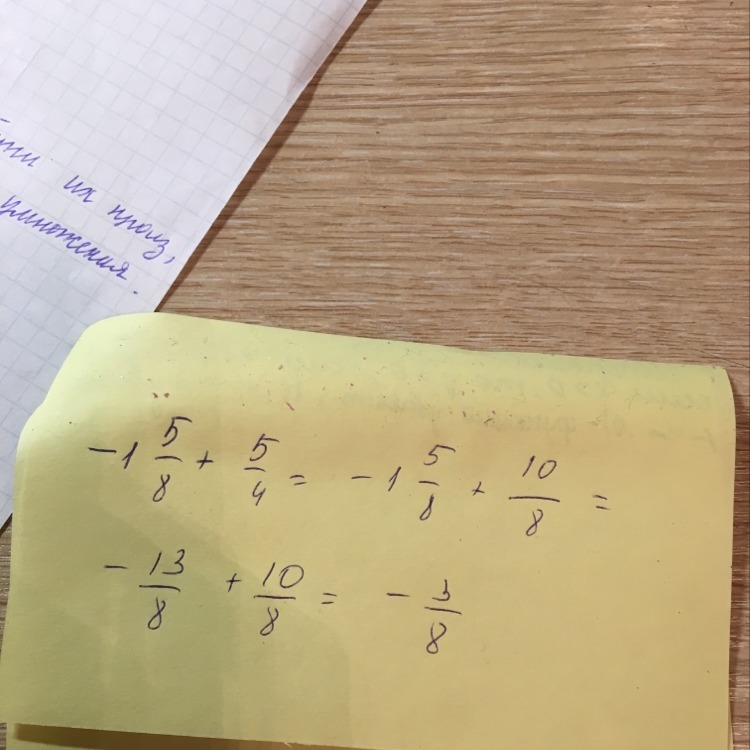 их произ,
умножения.
-1 5/8 + 5/4 = -1 5/8 + 10/8 =
-13/8 + 10/8 = -3/8